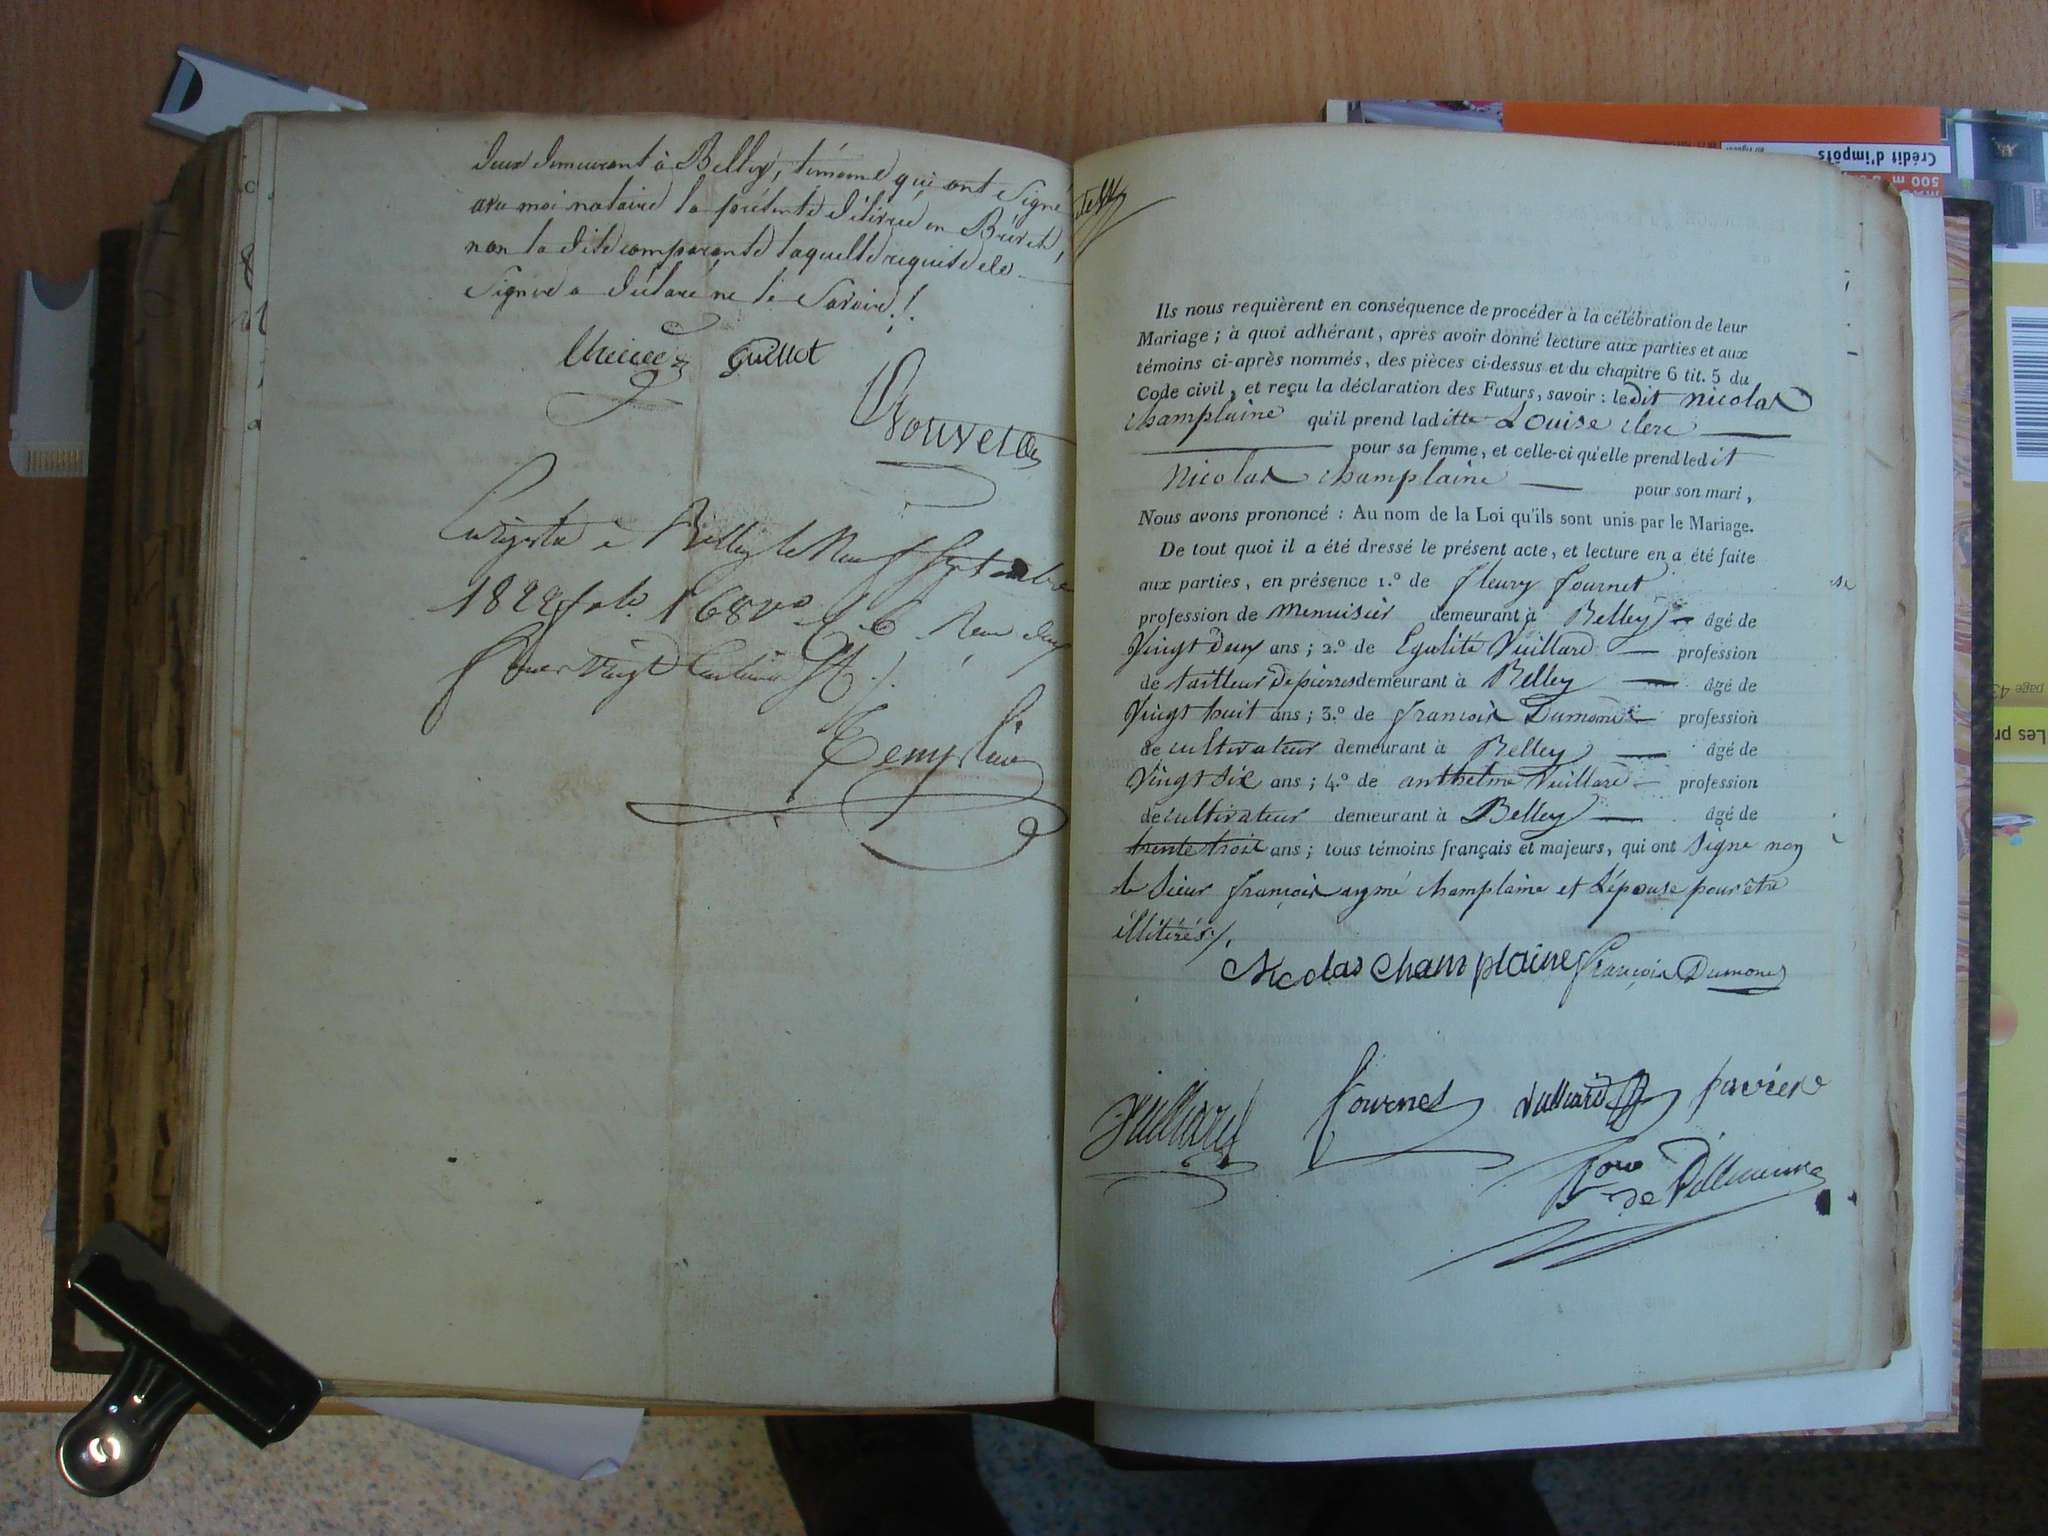 deux demeurant à Belley, témoins qui ont signé
avec moi notaire la présente délivrée en Brevet,
non la dite comparante laquelle requise de
signer a déclaré ne le savoir./.
Guillot
Rouvet
Enregistré à Belley le Neuf Septembre
1822 folo 168 vo C. 6 Reçu deux
francs vingt centimes
Ils nous requièrent en conséquence de procéder à la célébration de leur
Mariage ; à quoi adhérant, après avoir donné lecture aux parties et aux
témoins ci-après nommés, des pièces ci-dessus et du chapitre 6 tit. 5 du
Code civil, et reçu la déclaration des Futurs, savoir : ledit nicolas
champlaine qu'il prend laditte Louise clerc
pour sa femme, et celle-ci qu'elle prend ledit
Nicolas champlaine pour son mari,
Nous avons prononcé : Au nom de la Loi qu'ils sont unis par le Mariage.
De tout quoi il a été dressé le présent acte, et lecture en a été faite
aux parties, en présence 1.º de fleury fournet
profession de Menuisier demeurant à Belley âgé de
Vingt deux ans ; 2.º de Egalité Vuillard profession
de tailleur de pierres demeurant à Belley âgé de
Vingt huit ans ; 3.º de françois Dumonet profession
de cultivateur demeurant à Belley âgé de
Vingt six ans ; 4.º de anthelme Vuillard profession
de cultivateur demeurant à Belley âgé de
trente trois ans ; tous témoins français et majeurs, qui ont signé non
le sieur françois aymé champlaine et l'épouse pour être
illitérés./.
Nicolas champlaine françois Dumonet
Vuilliard fournet vulliard paviere
de
Crédit d'impôts
500 m
page 43
Les pr